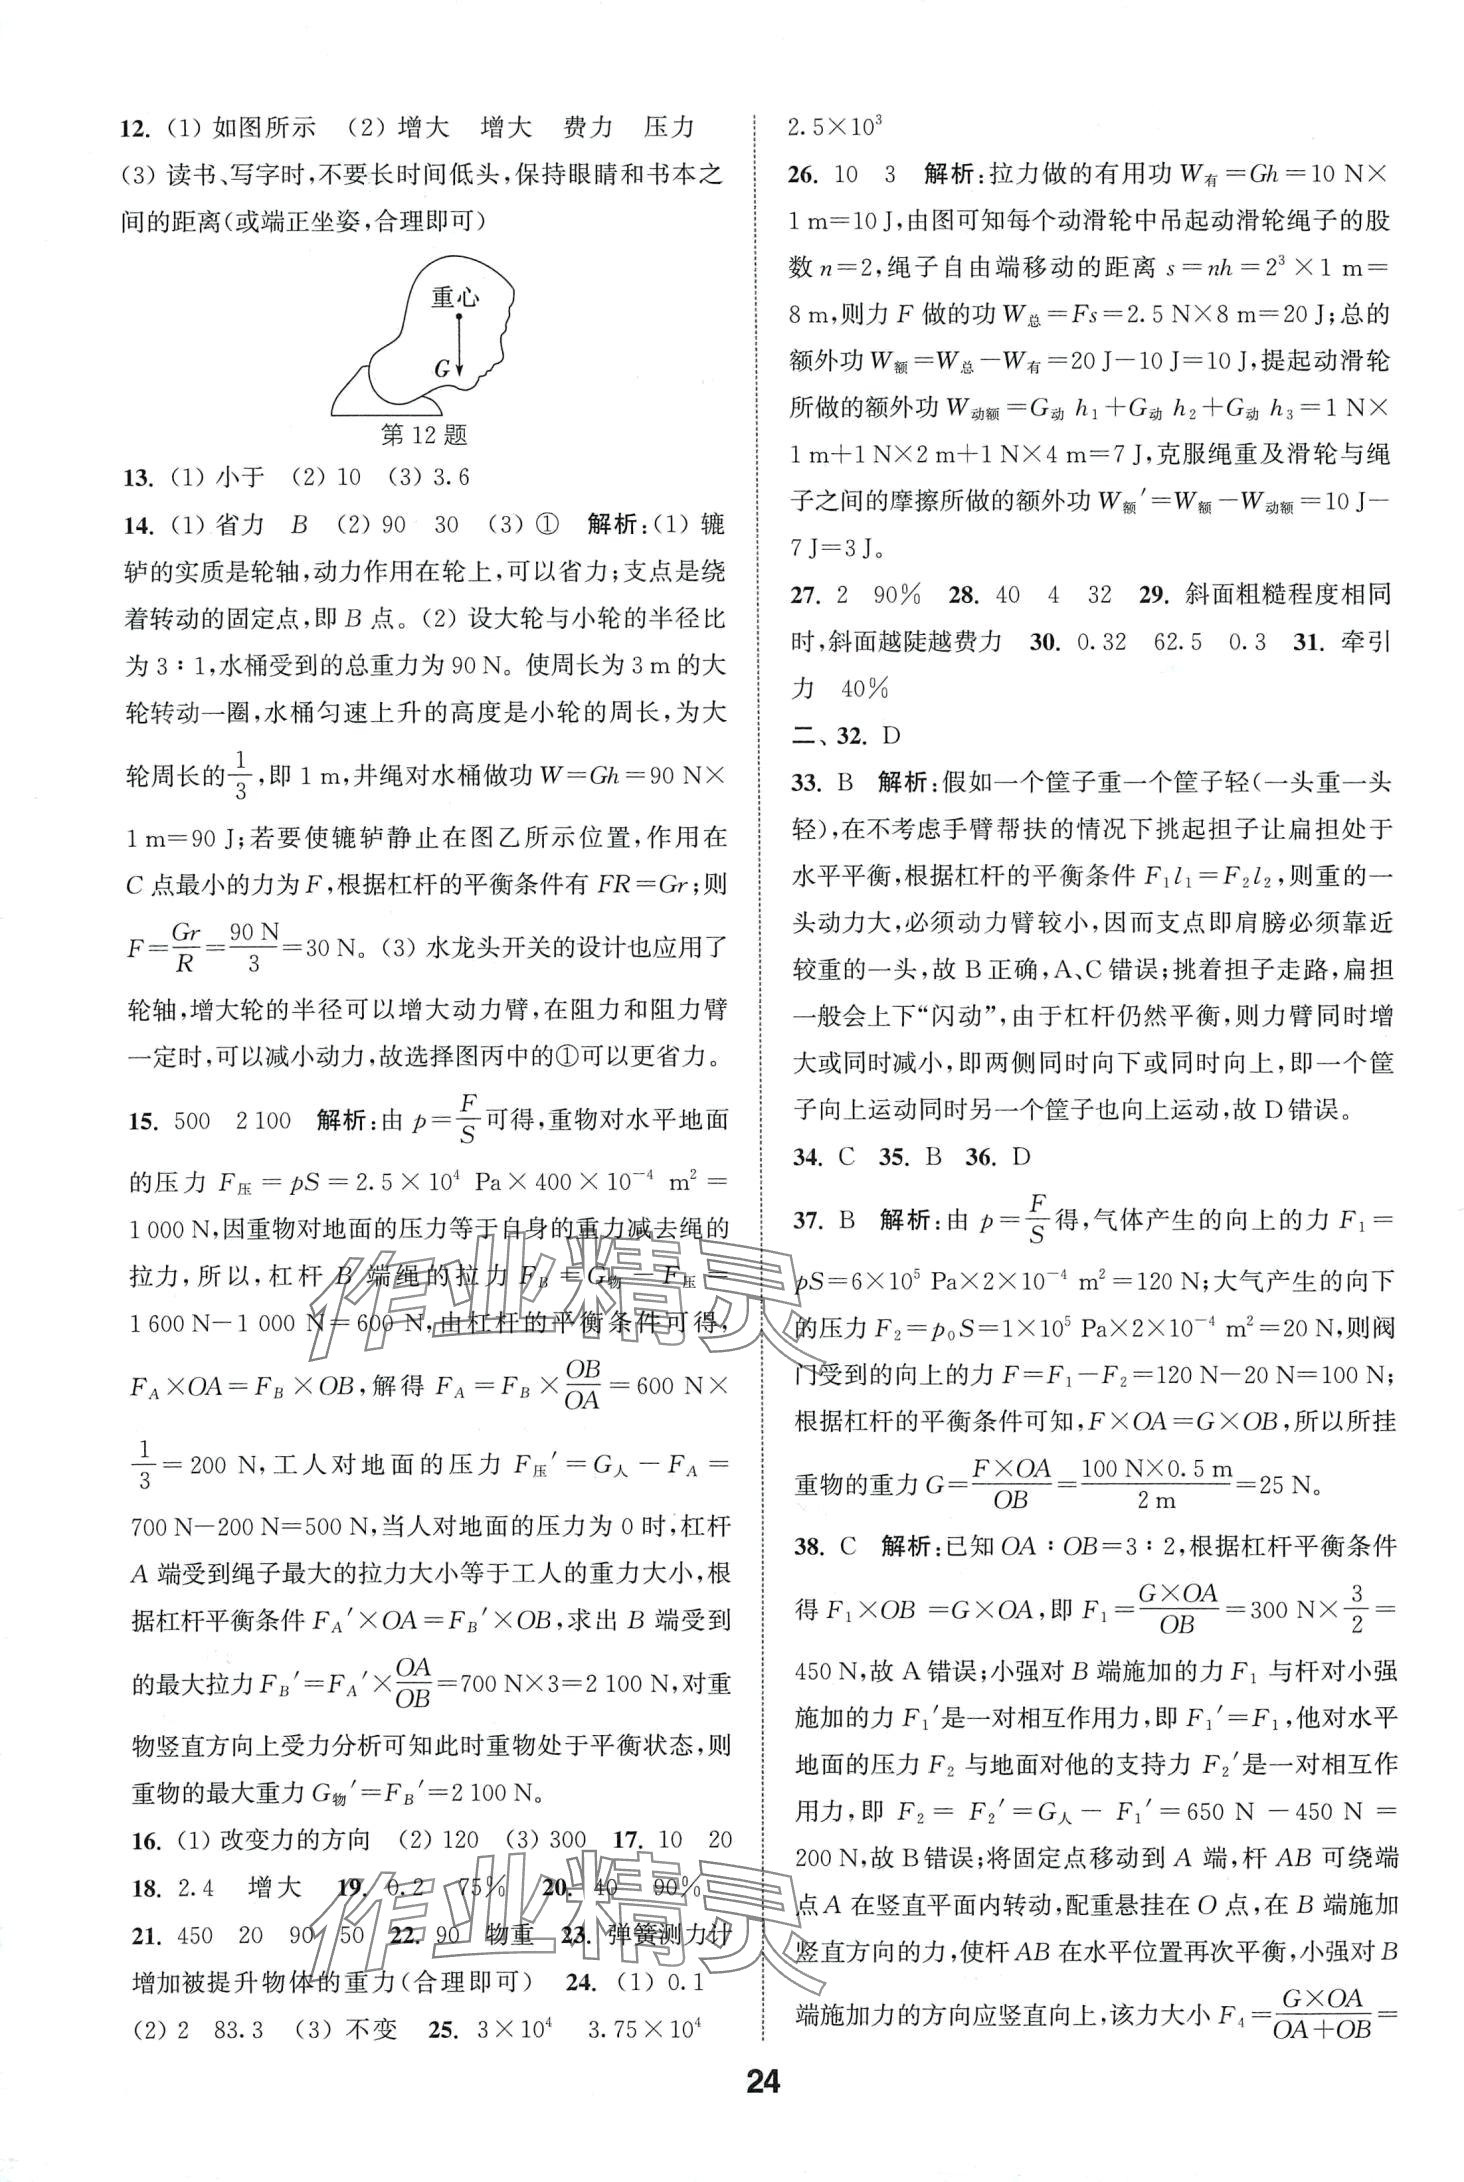 12. (1) 如图所示 (2) 增大 增大 费力 压力
(3) 读书、写字时,不要长时间低头,保持眼睛和书本之
间的距离(或端正坐姿,合理即可)
重心
G
第12题
13. (1) 小于 (2) 10 (3) 3.6
14. (1) 省力 B (2) 90 30 (3) ① 解析:(1) 辘
轳的实质是轮轴,动力作用在轮上,可以省力;支点是绕
着转动的固定点,即 B 点。(2) 设大轮与小轮的半径比
为 3∶1,水桶受到的总重力为 90 N。使周长为 3 m 的大
轮转动一圈,水桶匀速上升的高度是小轮的周长,为大
轮周长的1/3,即 1 m,井绳对水桶做功 W=Gh=90 N×
1 m=90 J;若要使辘轳静止在图乙所示位置,作用在
C 点最小的力为 F,根据杠杆的平衡条件有 FR=Gr;则
F=Gr/R=90 N/3=30 N。(3) 水龙头开关的设计也应用了
轮轴,增大轮的半径可以增大动力臂,在阻力和阻力臂
一定时,可以减小动力,故选择图丙中的①可以更省力。
15. 500 2 100 解析:由 p=F/S可得,重物对水平地面
的压力 F压=pS=2.5×10⁴ Pa×400×10⁻⁴ m²=
1 000 N,因重物对地面的压力等于自身的重力减去绳的
拉力,所以,杠杆 B 端绳的拉力 F_B=G物-F压=
1 600 N-1 000 N=600 N,由杠杆的平衡条件可得,
F_A×OA=F_B×OB,解得 F_A=F_B×OB/OA=600 N×
1/3=200 N,工人对地面的压力 F压′=G人-F_A=
700 N-200 N=500 N,当人对地面的压力为 0 时,杠杆
A 端受到绳子最大的拉力大小等于工人的重力大小,根
据杠杆平衡条件 F_A′×OA=F_B′×OB,求出 B 端受到
的最大拉力 F_B′=F_A′×OA/OB=700 N×3=2 100 N,对重
物竖直方向上受力分析可知此时重物处于平衡状态,则
重物的最大重力 G物′=F_B′=2 100 N。
16. (1) 改变力的方向 (2) 120 (3) 300 17. 10 20
18. 2.4 增大 19. 0.2 75% 20. 40 90%
21. 450 20 90 50 22. 90 物重 23. 弹簧测力计
增加被提升物体的重力(合理即可) 24. (1) 0.1
(2) 2 83.3 (3) 不变 25. 3×10⁴ 3.75×10⁴
2.5×10³
26. 10 3 解析:拉力做的有用功 W有=Gh=10 N×
1 m=10 J,由图可知每个动滑轮中吊起动滑轮绳子的股
数 n=2,绳子自由端移动的距离 s=nh=2³×1 m=
8 m,则力 F 做的功 W总=Fs=2.5 N×8 m=20 J;总的
额外功 W额=W总-W有=20 J-10 J=10 J,提起动滑轮
所做的额外功 W动额=G动 h₁+G动 h₂+G动 h₃=1 N×
1 m+1 N×2 m+1 N×4 m=7 J,克服绳重及滑轮与绳
子之间的摩擦所做的额外功 W额′=W额-W动额=10 J-
7 J=3 J。
27. 2 90% 28. 40 4 32 29. 斜面粗糙程度相同
时,斜面越陡越费力 30. 0.32 62.5 0.3 31. 牵引
力 40%
二、32. D
33. B 解析:假如一个筐子重一个筐子轻(一头重一头
轻),在不考虑手臂帮扶的情况下挑起担子让扁担处于
水平平衡,根据杠杆的平衡条件 F₁l₁=F₂l₂,则重的一
头动力大,必须动力臂较小,因而支点即肩膀必须靠近
较重的一头,故 B 正确,A、C 错误;挑着担子走路,扁担
一般会上下“闪动”,由于杠杆仍然平衡,则力臂同时增
大或同时减小,即两侧同时向下或同时向上,即一个筐
子向上运动同时另一个筐子也向上运动,故 D 错误。
34. C 35. B 36. D
37. B 解析:由 p=F/S得,气体产生的向上的力 F₁=
pS=6×10⁵ Pa×2×10⁻⁴ m²=120 N;大气产生的向下
的压力 F₂=p₀S=1×10⁵ Pa×2×10⁻⁴ m²=20 N,则阀
门受到的向上的力 F=F₁-F₂=120 N-20 N=100 N;
根据杠杆的平衡条件可知,F×OA=G×OB,所以所挂
重物的重力 G=F×OA/OB=100 N×0.5 m/2 m=25 N。
38. C 解析:已知 OA∶OB=3∶2,根据杠杆平衡条件
得 F₁×OB=G×OA,即 F₁=G×OA/OB=300 N×3/2=
450 N,故 A 错误;小强对 B 端施加的力 F₁ 与杆对小强
施加的力 F₁′是一对相互作用力,即 F₁′=F₁,他对水平
地面的压力 F₂ 与地面对他的支持力 F₂′是一对相互作
用力,即 F₂=F₂′=G人-F₁′=650 N-450 N=
200 N,故 B 错误;将固定点移动到 A 端,杆 AB 可绕端
点 A 在竖直平面内转动,配重悬挂在 O 点,在 B 端施加
竖直方向的力,使杆 AB 在水平位置再次平衡,小强对 B
端施加力的方向应竖直向上,该力大小 F₄=G×OA/OA+OB=
24
作业精灵
作业精灵